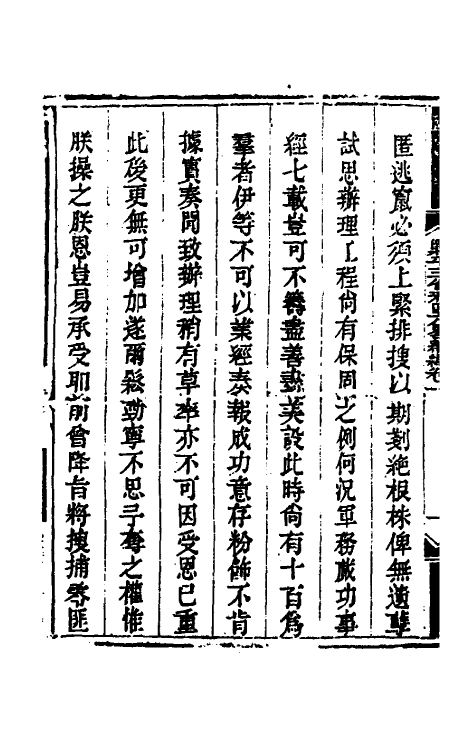 匿逃竄必須上緊排搜以期剗絶根株俾無遺孽
試思辦理工程尙有保固之例何況軍務蕆功事
經七載豈可不籌盡善盡美設此時尙有十百爲
羣者伊等不可以業經奏報成功意存粉飾不肯
據實奏聞致辦理稍有草率亦不可因受恩已重
此後更無可增加遂爾鬆勁寧不思予奪之權惟
朕操之朕恩豈易承受耶前曾降旨將搜捕零匪